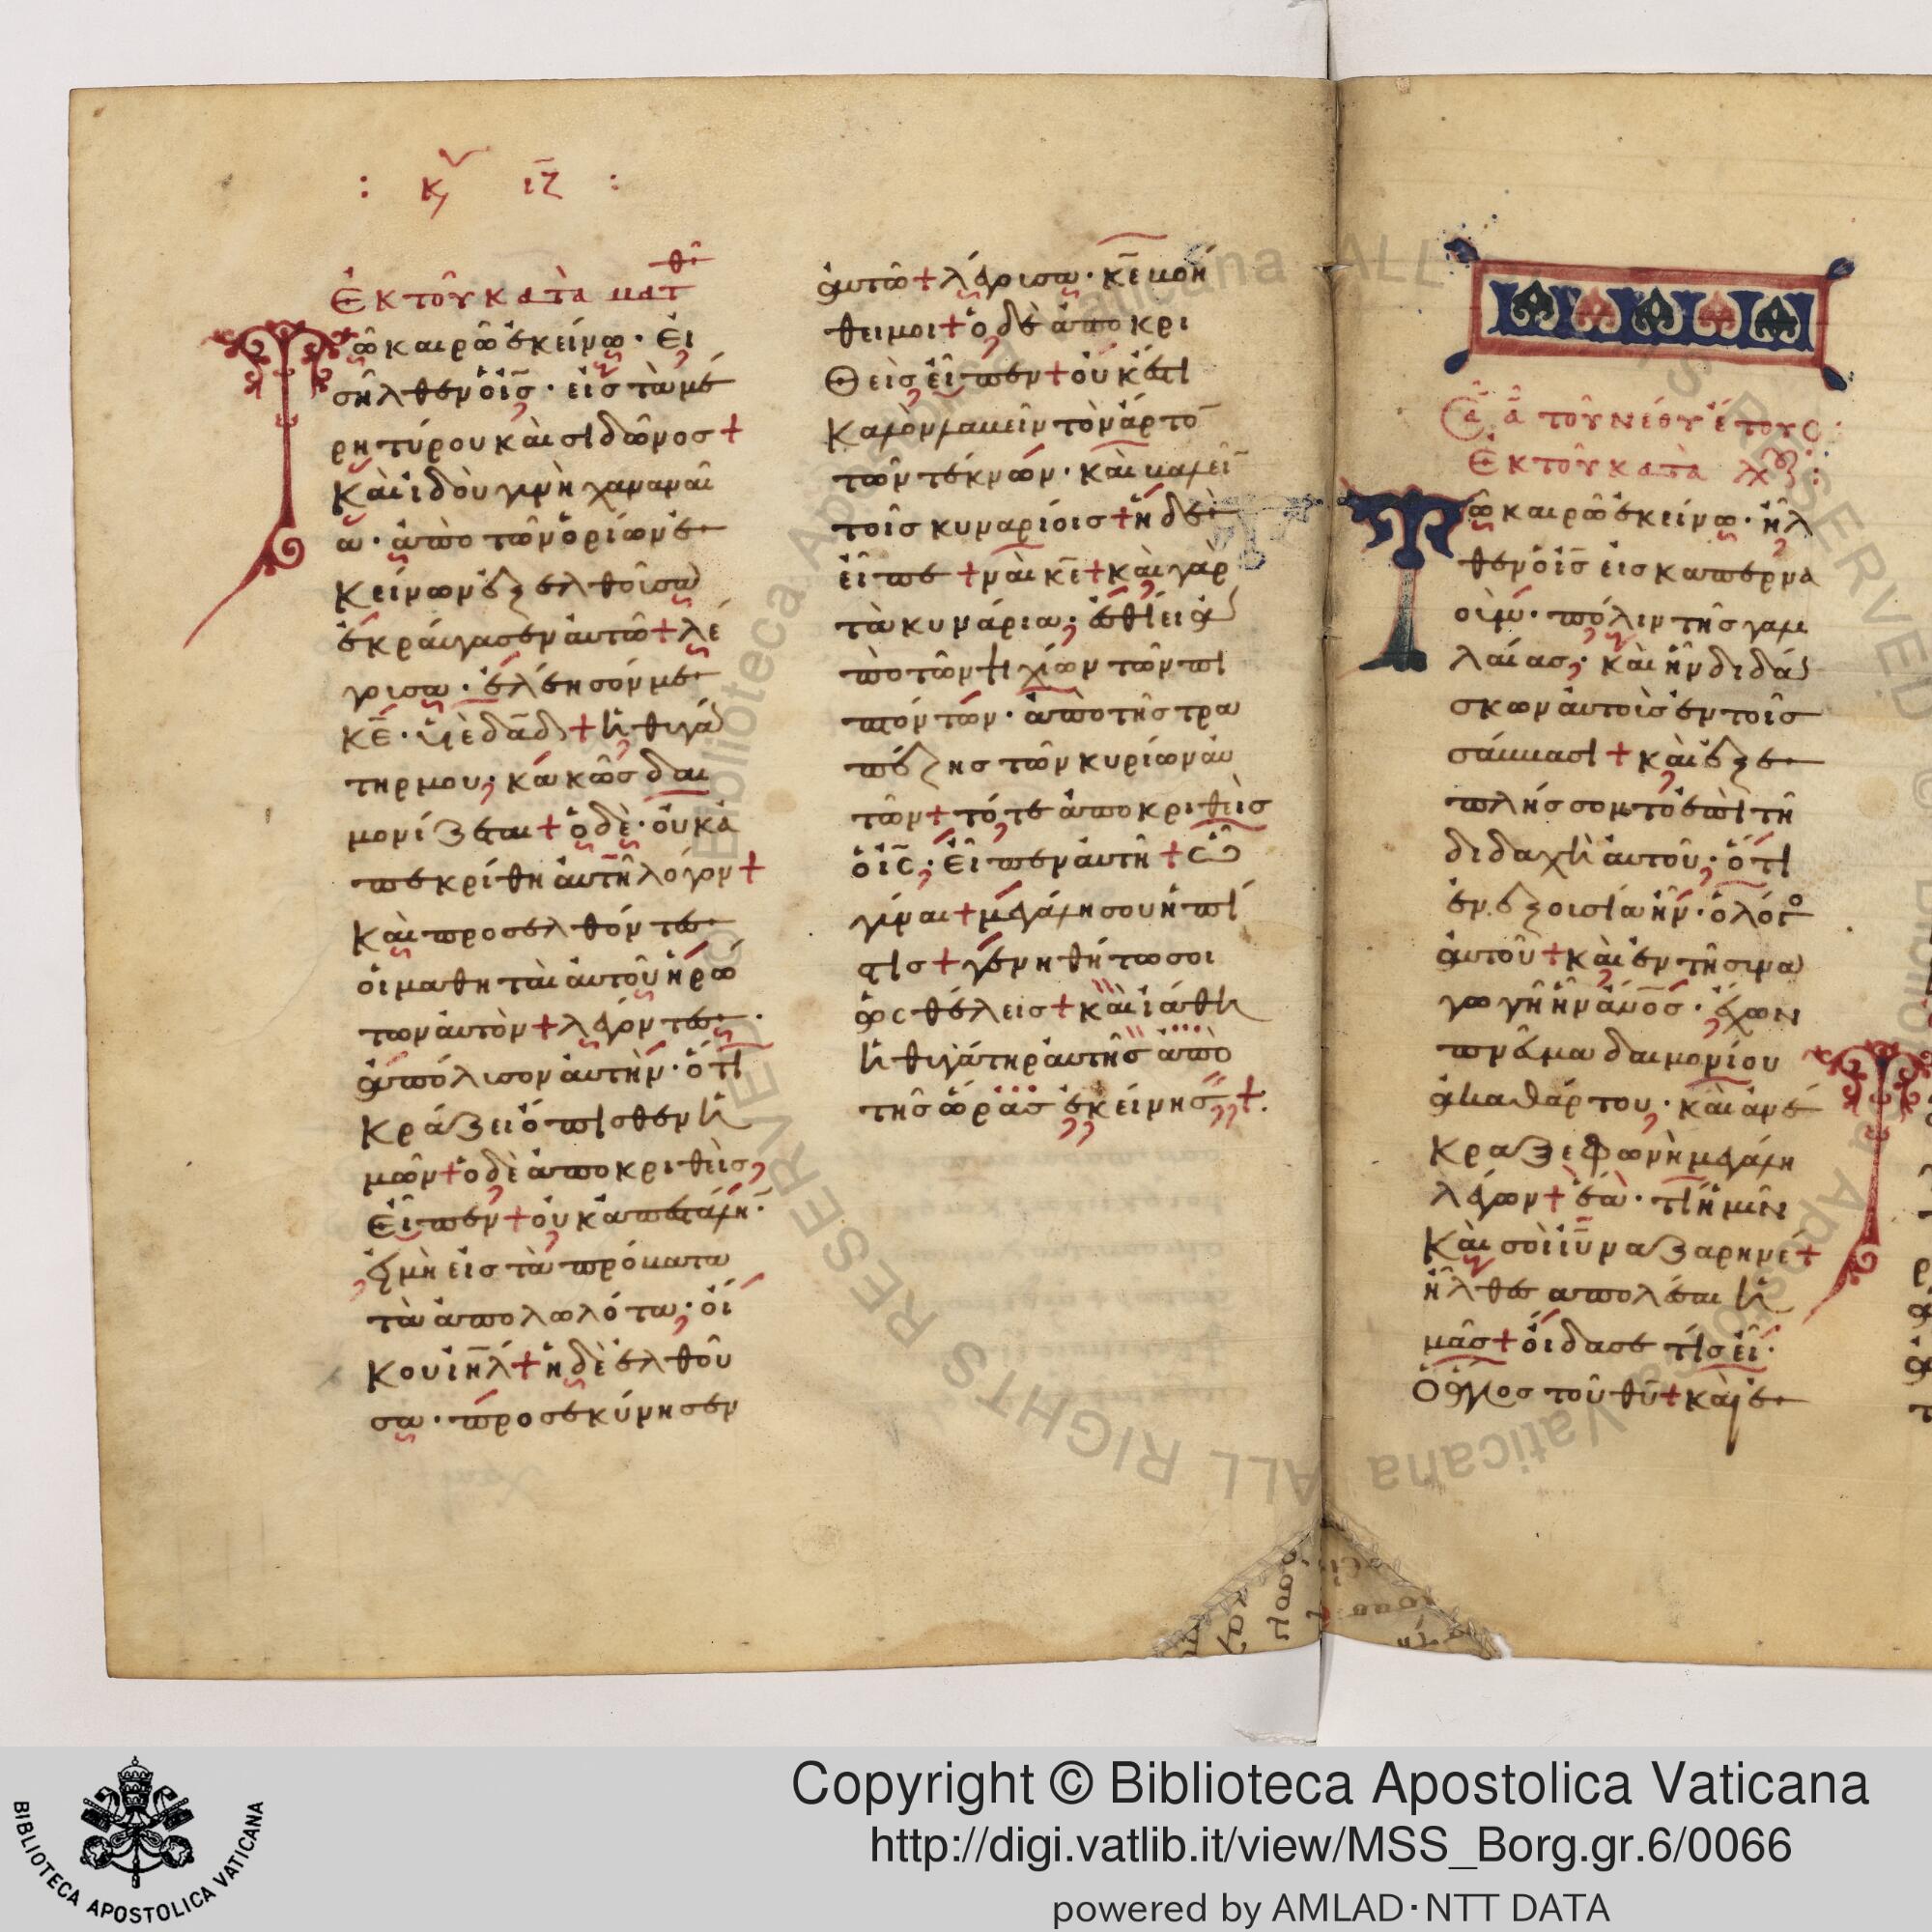 : κυ ιζ :
Ἐκ τοῦ κατὰ ματθ
Τῶ καιρῶ ἐκείνω · εἰ
σῆλθεν ὁ ις · εἰς τὰ μέ
ρη τύρου καὶ σιδῶνος +
Καὶ ἰδοὺ γυνὴ χαναναί
α · ἀπὸ τῶν ὁρίων ἐ
κείνων ἐξελθοῦσα
ἐκράυγασεν ἀυτῶ + λέ
γουσα · ἐλέησόν με
κε · υἱὲ δαδ + ἡ θυγά
τηρ μου, κακῶς δαι
μονίζεται + ὁ δὲ · οὐκ ἀ
πεκρίθη ἀυτῆ λόγον +
Καὶ προσελθόντες
οἱ μαθηταὶ ἀυτοῦ ἠρώ
των ἀυτὸν + λέγοντες ·
ἀπόλυσον ἀυτήν · ὅτι
κράζει ὄπισθεν ἡ
μῶν + ὁ δὲ ἀποκριθεὶς,
εἶπεν + οὐκ ἀπεστάλην
εἰ μὴ εἰς τὰ πρόβατα
τὰ ἀπολωλότα, οἴ
κου ιηλ + ἡ δὲ ἐλθοῦ
σα · προσεκύνησεν
ἀυτῶ + λέγουσα · κε βοή
θει μοι + ὁ δὲ ἀποκρι
θεὶς εἶπεν + οὐκ ἔστι
καλὸν λαβεῖν τὸν ἄρτον
τῶν τέκνων · καὶ βαλεῖν
τοῖς κυναρίοις + ἡ δὲ
εἶπε + ναὶ κε + καὶ γὰρ
τὰ κυνάρια, ἐσθίει ἀ
πὸ τῶν ψιχίων τῶν πι
πτόντων · ἀπὸ τῆς τρα
πέζης τῶν κυρίων ἀυ
τῶν + τότε ἀποκριθεὶς
ὁ ις, εἶπεν ἀυτῆ + ὦ
γύναι + μεγάλη σου ἡ πί
στις + γενηθήτω σοι
ὡς θέλεις + καὶ ἰάθη
ἡ θυγάτηρ ἀυτῆς ἀπὸ
τῆς ὥρας ἐκείνης +
Σα α τοῦ νέου ἔτους :
Ἐκ τοῦ κατὰ λκ :
Τῶ καιρῶ ἐκείνω · ἦλ
θεν ὁ ις εἰς καπερνα
οὺμ · πόλιν τῆς γαλι
λαίας, καὶ ἦν διδά
σκων ἀυτοὺς ἐν τοῖς
σάββασι + καὶ ἐξε
πλήσσοντο ἐπὶ τῆ
διδαχῆ ἀυτοῦ, ὅτι
ἐν ἐξουσία ἦν · ὁ λόγος
ἀυτοῦ + καὶ ἐν τῆ συνα
γωγῆ ἦν ανος · ἔχων
πνεῦμα δαιμονίου
ἀκαθάρτου, καὶ ἀνέ
κραξε φωνὴ μεγάλη
λέγων + ἔα · τί ἡμῖν
καὶ σοὶ ιυ ναζαρηνέ +
ἦλθε ἀπολέσαι ἡ
μᾶς + οἶδα σε τίς εἶ ·
Ὁ ἅγιος τοῦ θυ + καὶ ἐ
Copyright © Biblioteca Apostolica Vaticana
http://digi.vatlib.it/view/MSS_Borg.gr.6/0066
powered by AMLAD·NTT DATA
BIBLIOTECA APOSTOLICA VATICANA